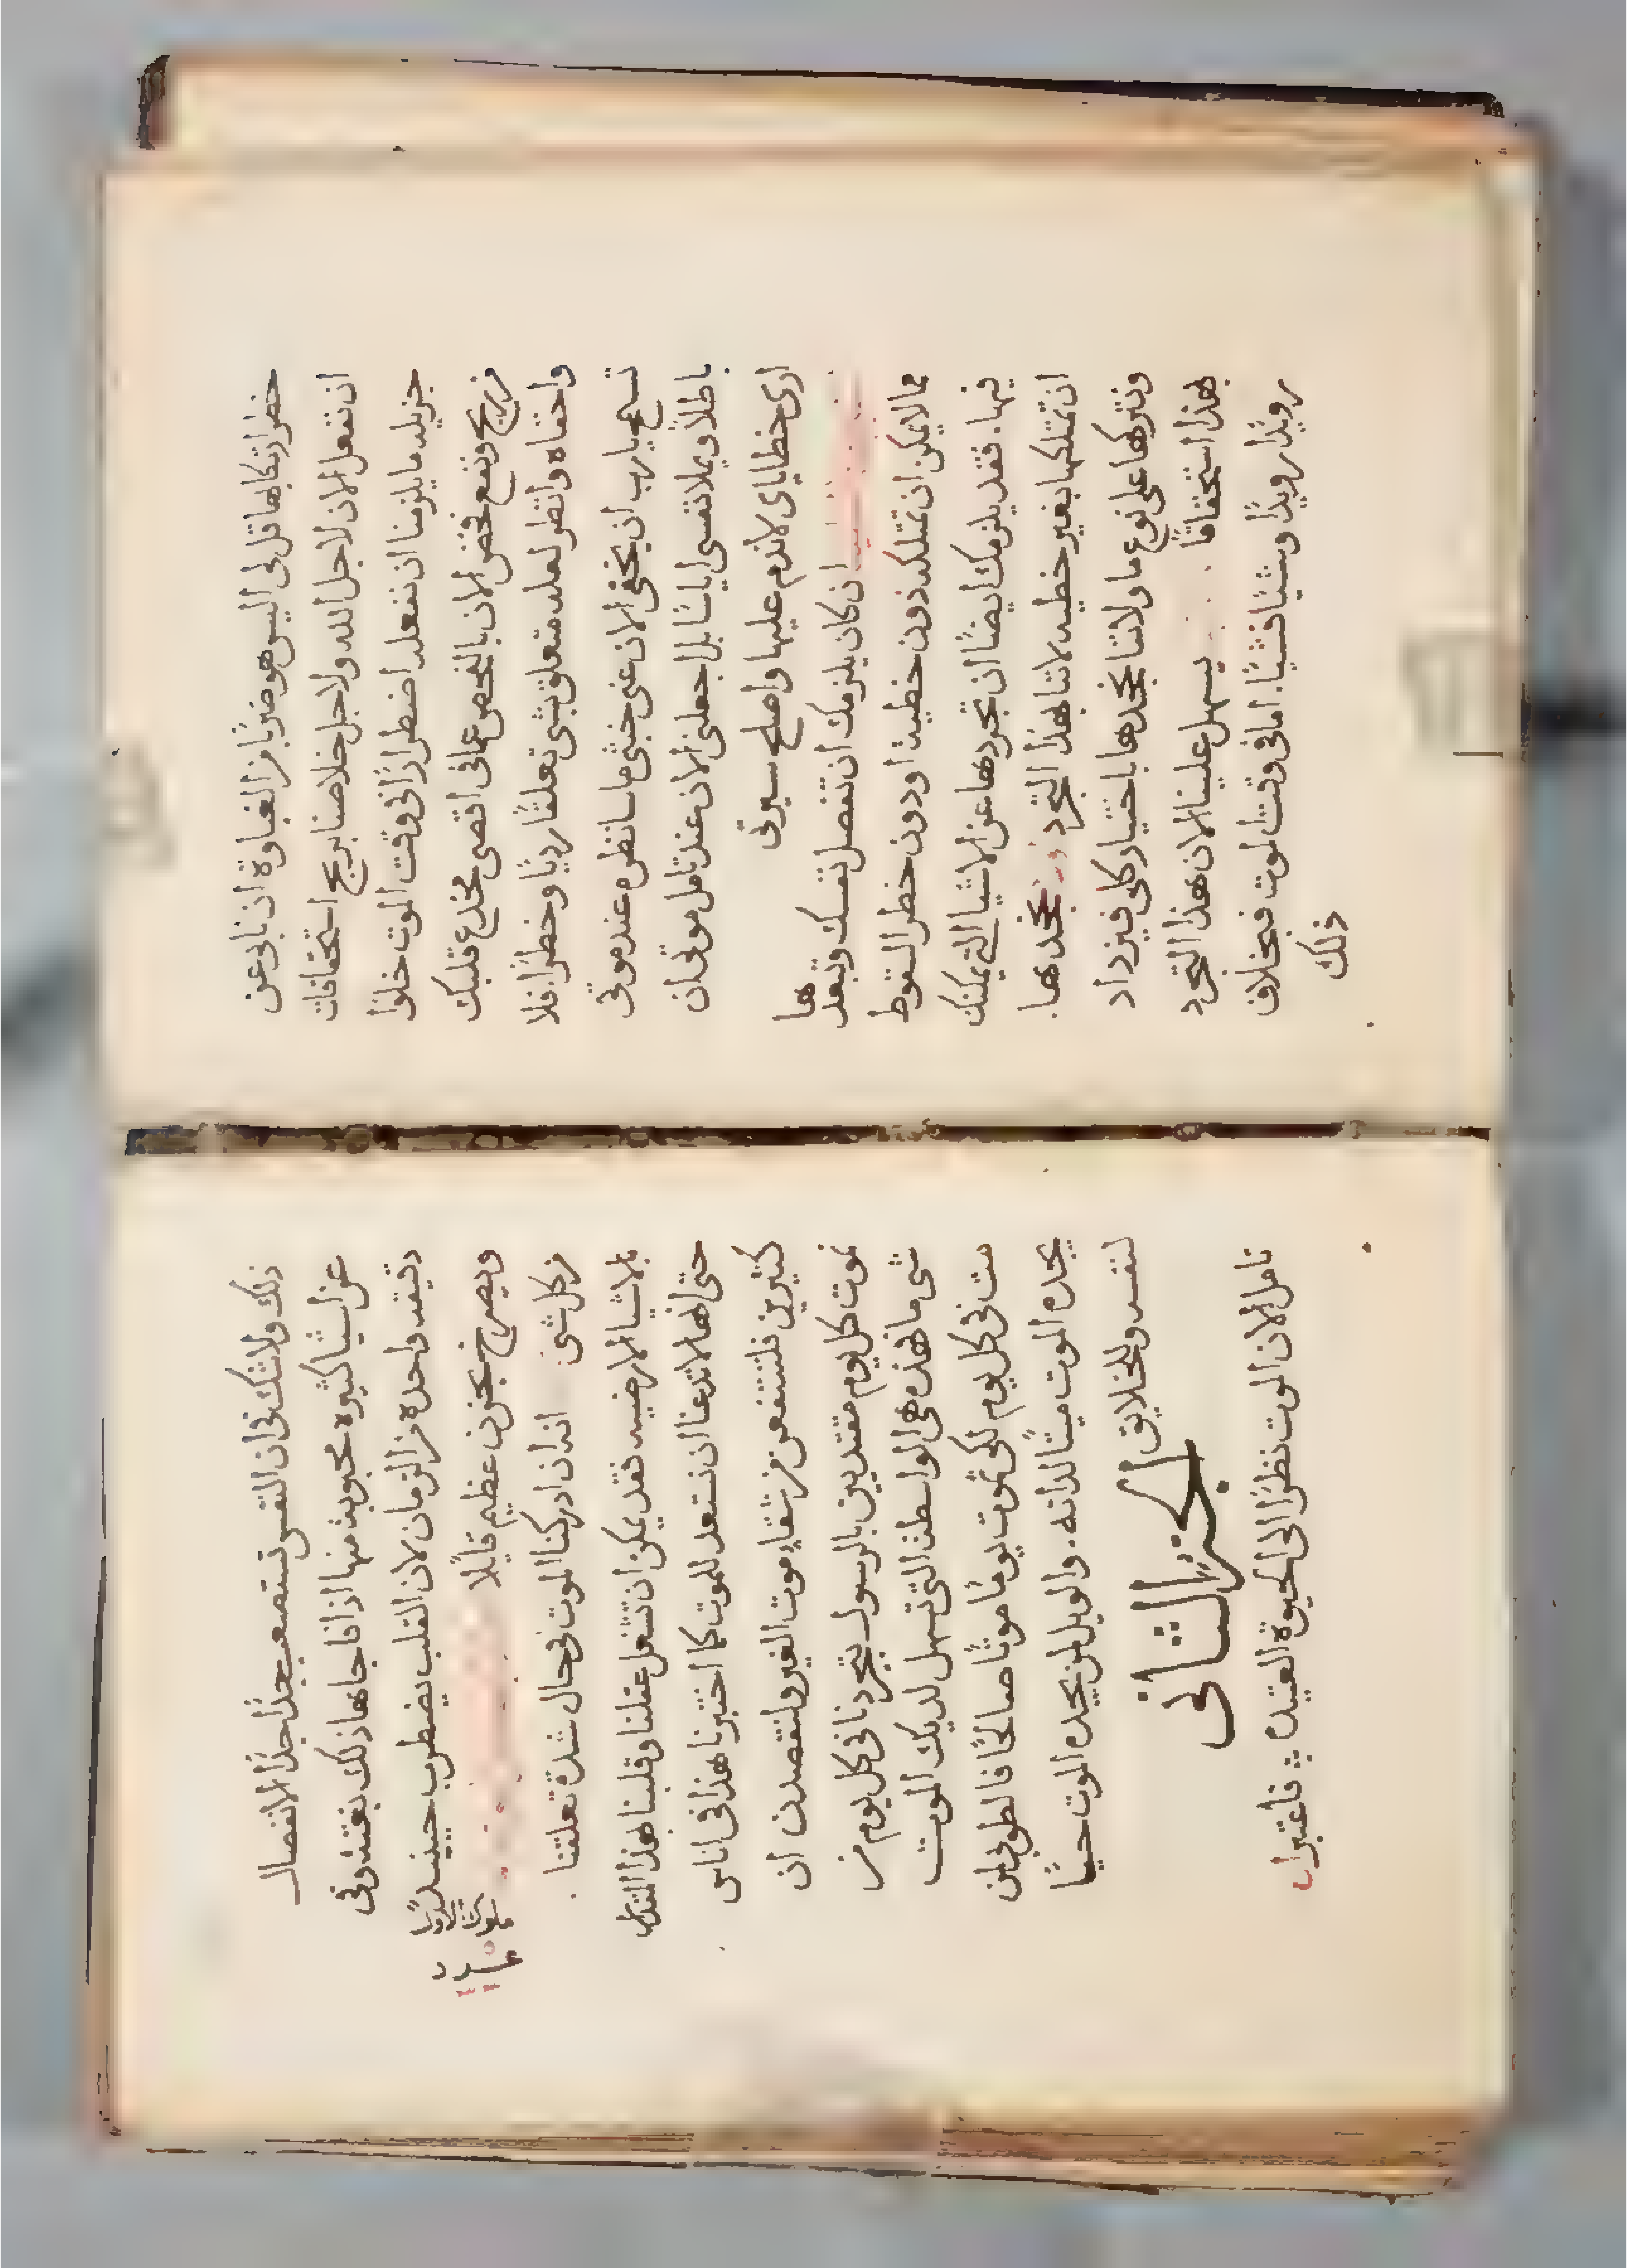 خطر ارتكابها قل لى اليس هو ضربًا من الغباوة ان نابى عن
ان نفعل الان لاجل الله ولاجل خلاصنا بربح استحقاقات
جزيله ما يلزمنا ان نفعله اضطرارًا فى وقت الموت خلوًا
من ربح ونفع فخض الان بالفحص عما فى اقصى مخدع قلبك
واحشاه وانظر لعله متعلق بشى تعلقًا رديًا وخطرًا. فلا
تسمح يارب ان يخفى الان عنى خبثى ما سانظره عند موتى
باطلًا ويملا نفسى اياسًا بل اجعلنى الان عند تامل موتى ان
ارى خطاياى لاندم عليها واصلح سيرتى
ان كان يلزمك ان تفصل نفسك وتبعدها
مما لا يمكن ان تمتلكه دون خطية او دون خطر السقوط
فيها. فقد يلزمك ايضًا ان تجردها عن الاشيا التى يمكنك
ان تمتلكها بغير خطيه لاننا بهذا التجرد نجحدها.
ونتركها على نوع ما ولاننا نجحدها باختيار كلى فيزداد
بهذا استحقاقًا يسهل علينا الان هذا التجرد
رويدًا رويدًا وشيًا فشيًا. اما فى وقت الموت فبخلاف
ذلك
ذلك ولاشك فى ان النفس تستصعب جدًا جدًا الانفصال
عن اشيا كثيره محبوبة منها اذا فاجاها ذلك بغتة وفى
دقيقه واحدة من الزمان لان القلب يضطرب حينيذ
ويصرخ بحزن عظيم قايلًا
من كل شى انه ان ادركنا الموت فى حال شدة تعلقنا
بالاشيا الارضيه فقد يمكن ان تشغل عقلنا وقلبنا بهذا المقدار
حتى انها لا تدعنا ان نستعد للموت كما اختبرنا هذا فى اناس
كثيرين فلنتفعن من شقاء موت الغير ولنقصدن ان
نموت كل يوم مقتديين بالرسول بتجردنا فى كل يوم من
شى ما فهذه هى الواسطة التى تسهل لديك الموت
مت فى كل يوم لكى تموت يومًا موتًا صالحًا فالطوبى لمن
يجده الموت ميتًا لذاته. والويل لمن يجده الموت حيًا
لنفسه وللخلايق
الجز الثانى
تامل الان الموت نظرًا الى الحيوة العتيده فاعتبر ا